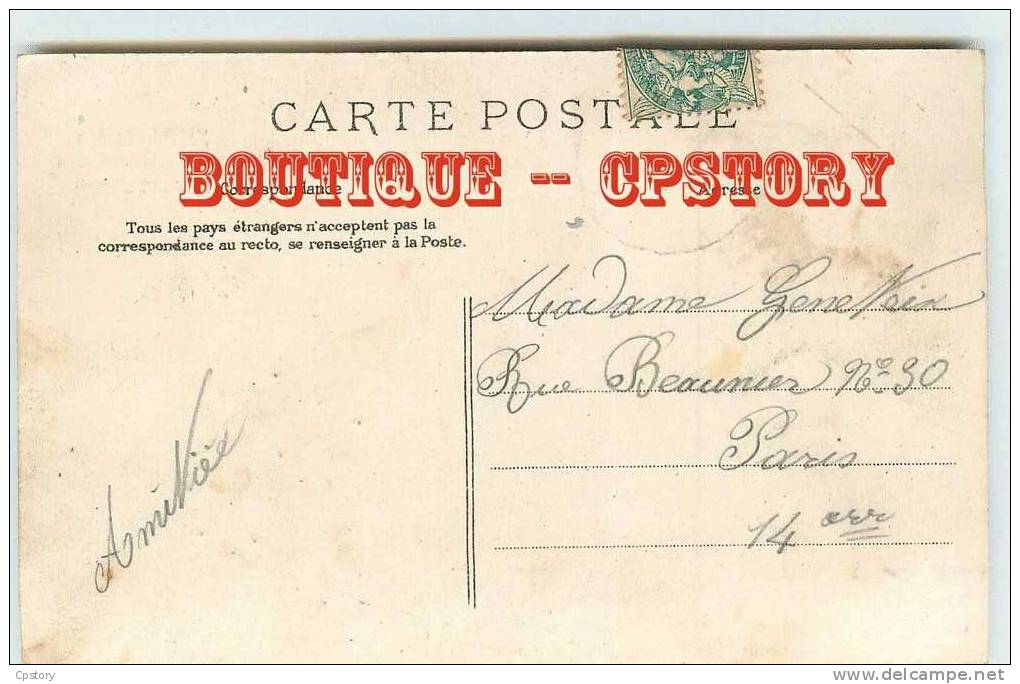 CARTE POSTALE
BOUTIQUE -- CPSTORY
Correspondance
Adresse
Tous les pays étrangers n'acceptent pas la
correspondance au recto, se renseigner à la Poste.
Madame
Rue Beaunier Nº 30
Paris
14 arr
Amitiés
Cpstory
www.delcampe.net